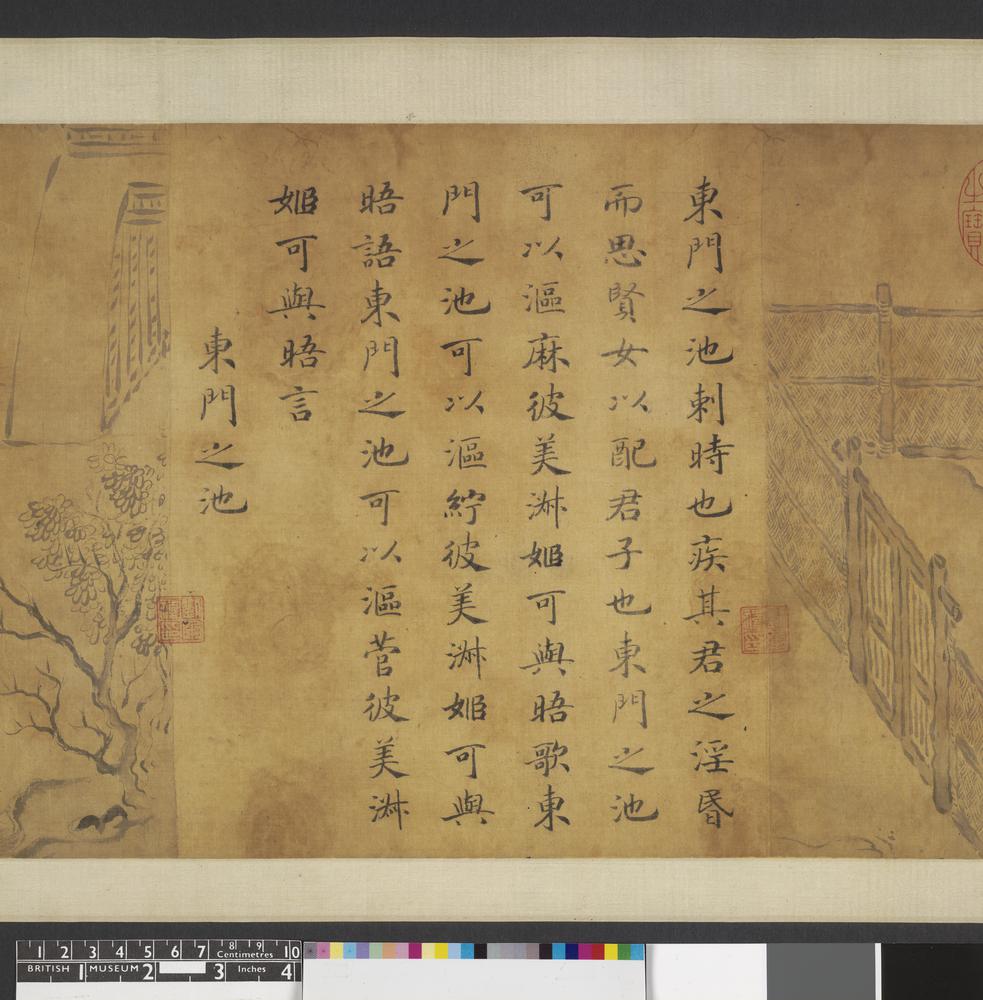 東門之池刺時也疾其君之淫昬
而思賢女以配君子也東門之池
可以漚麻彼美淑姬可與晤歌東
門之池可以漚紵彼美淑姬可與
晤語東門之池可以漚菅彼美淑
姬可與晤言
東門之池
之寶
1 2 3 4 5 6 7 8 9 10
Centimetres
BRITISH MUSEUM
1 2 3 4
Inches